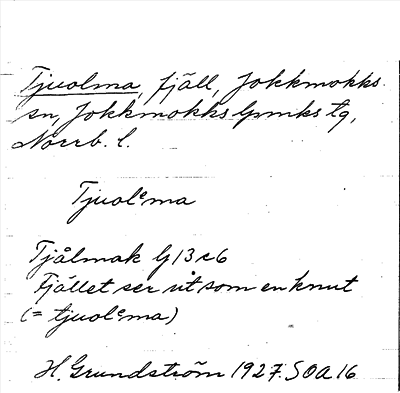 Tjuolma, fjäll, Jokkmokks
sn, Jokkmokks lpmks tg,
Norrb. l.
Tjuolᵉma
Tjålmak G13c6
Fjället ser ut som en knut
(= tjuolᵉma)
H. Grundström 1927. SOA 16